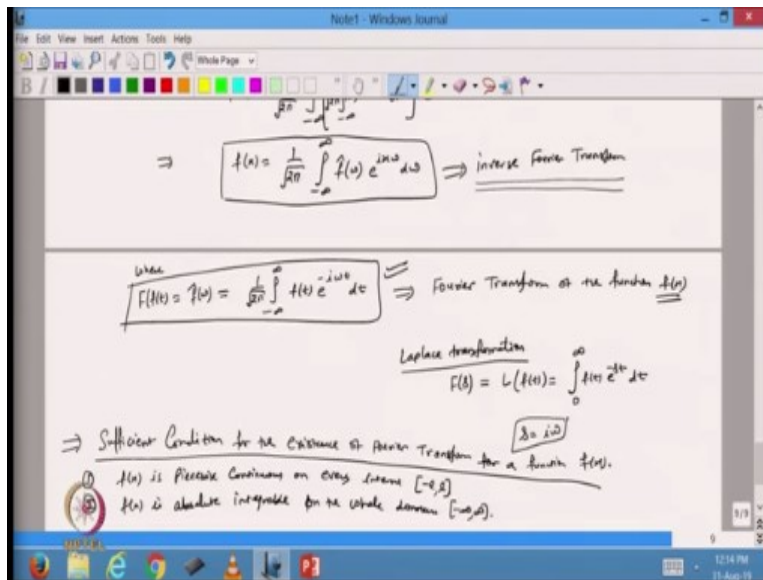 Note1 - Windows Journal
File Edit View Insert Actions Tools Help
Whole Page
B I
⇒ f(x) = 1/√2π ∫_{-∞}^{∞} f̂(ω) e^{ixω} dω ⇒ inverse Fourier Transform
where
F(f(t) = f̂(ω) = 1/√2π ∫_{-∞}^{∞} f(t) e^{-iωt} dt ⇒ Fourier Transform of the function f(x)
Laplace transformation
F(s) = L(f(t)) = ∫_{0}^{∞} f(t) e^{-st} dt
s = iω
⇒ Sufficient Condition for the existence of Fourier Transform for a function f(x).
① f(x) is Piecewise Continuous on every interval [-l, l]
② f(x) is absolute integrable on the whole domain [-∞, ∞).
NPTEL
9/9
9
12:14 PM
31-Aug-19